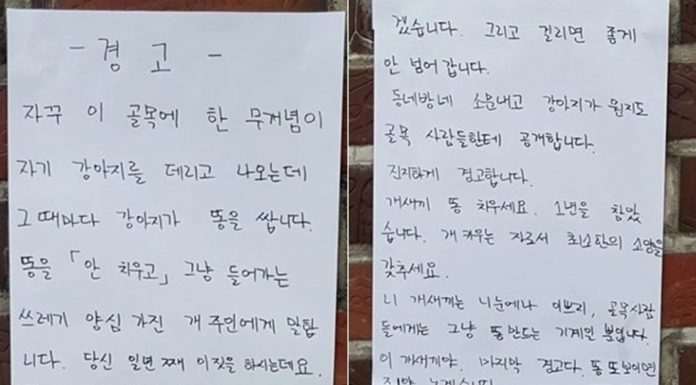 - 경고 -
자꾸 이 골목에 한 무개념이
자기 강아지를 데리고 나오는데
그때마다 강아지가 똥을 쌉니다.
똥을 「안 치우고」 그냥 들어가는
쓰레기 양심 가진 개 주인에게 말합
니다. 당신 일년 째 이짓을 하시는데요.
겠습니다. 그리고 걸리면 좋게
안 넘어갑니다.
동네방네 소문내고 강아지가 뭔지도
골목 사람들한테 공개합니다.
진지하게 경고합니다.
개새끼 똥 치우세요. 소년을 참았
습니다. 개 키우는 자로서 최소한의 소양을
갖추세요.
니 개새끼는 니눈에나 이쁘리, 골목사람
들에게는 그냥 똥만드는 기계일 뿐입니다.
이 개새끼야. 마지막 경고다. 똥 또보이면